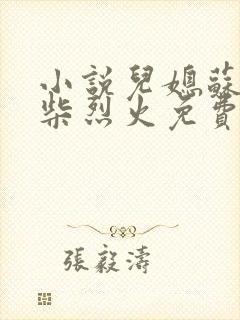 小說兒媳蘇
柴烈火免費
張毅濤